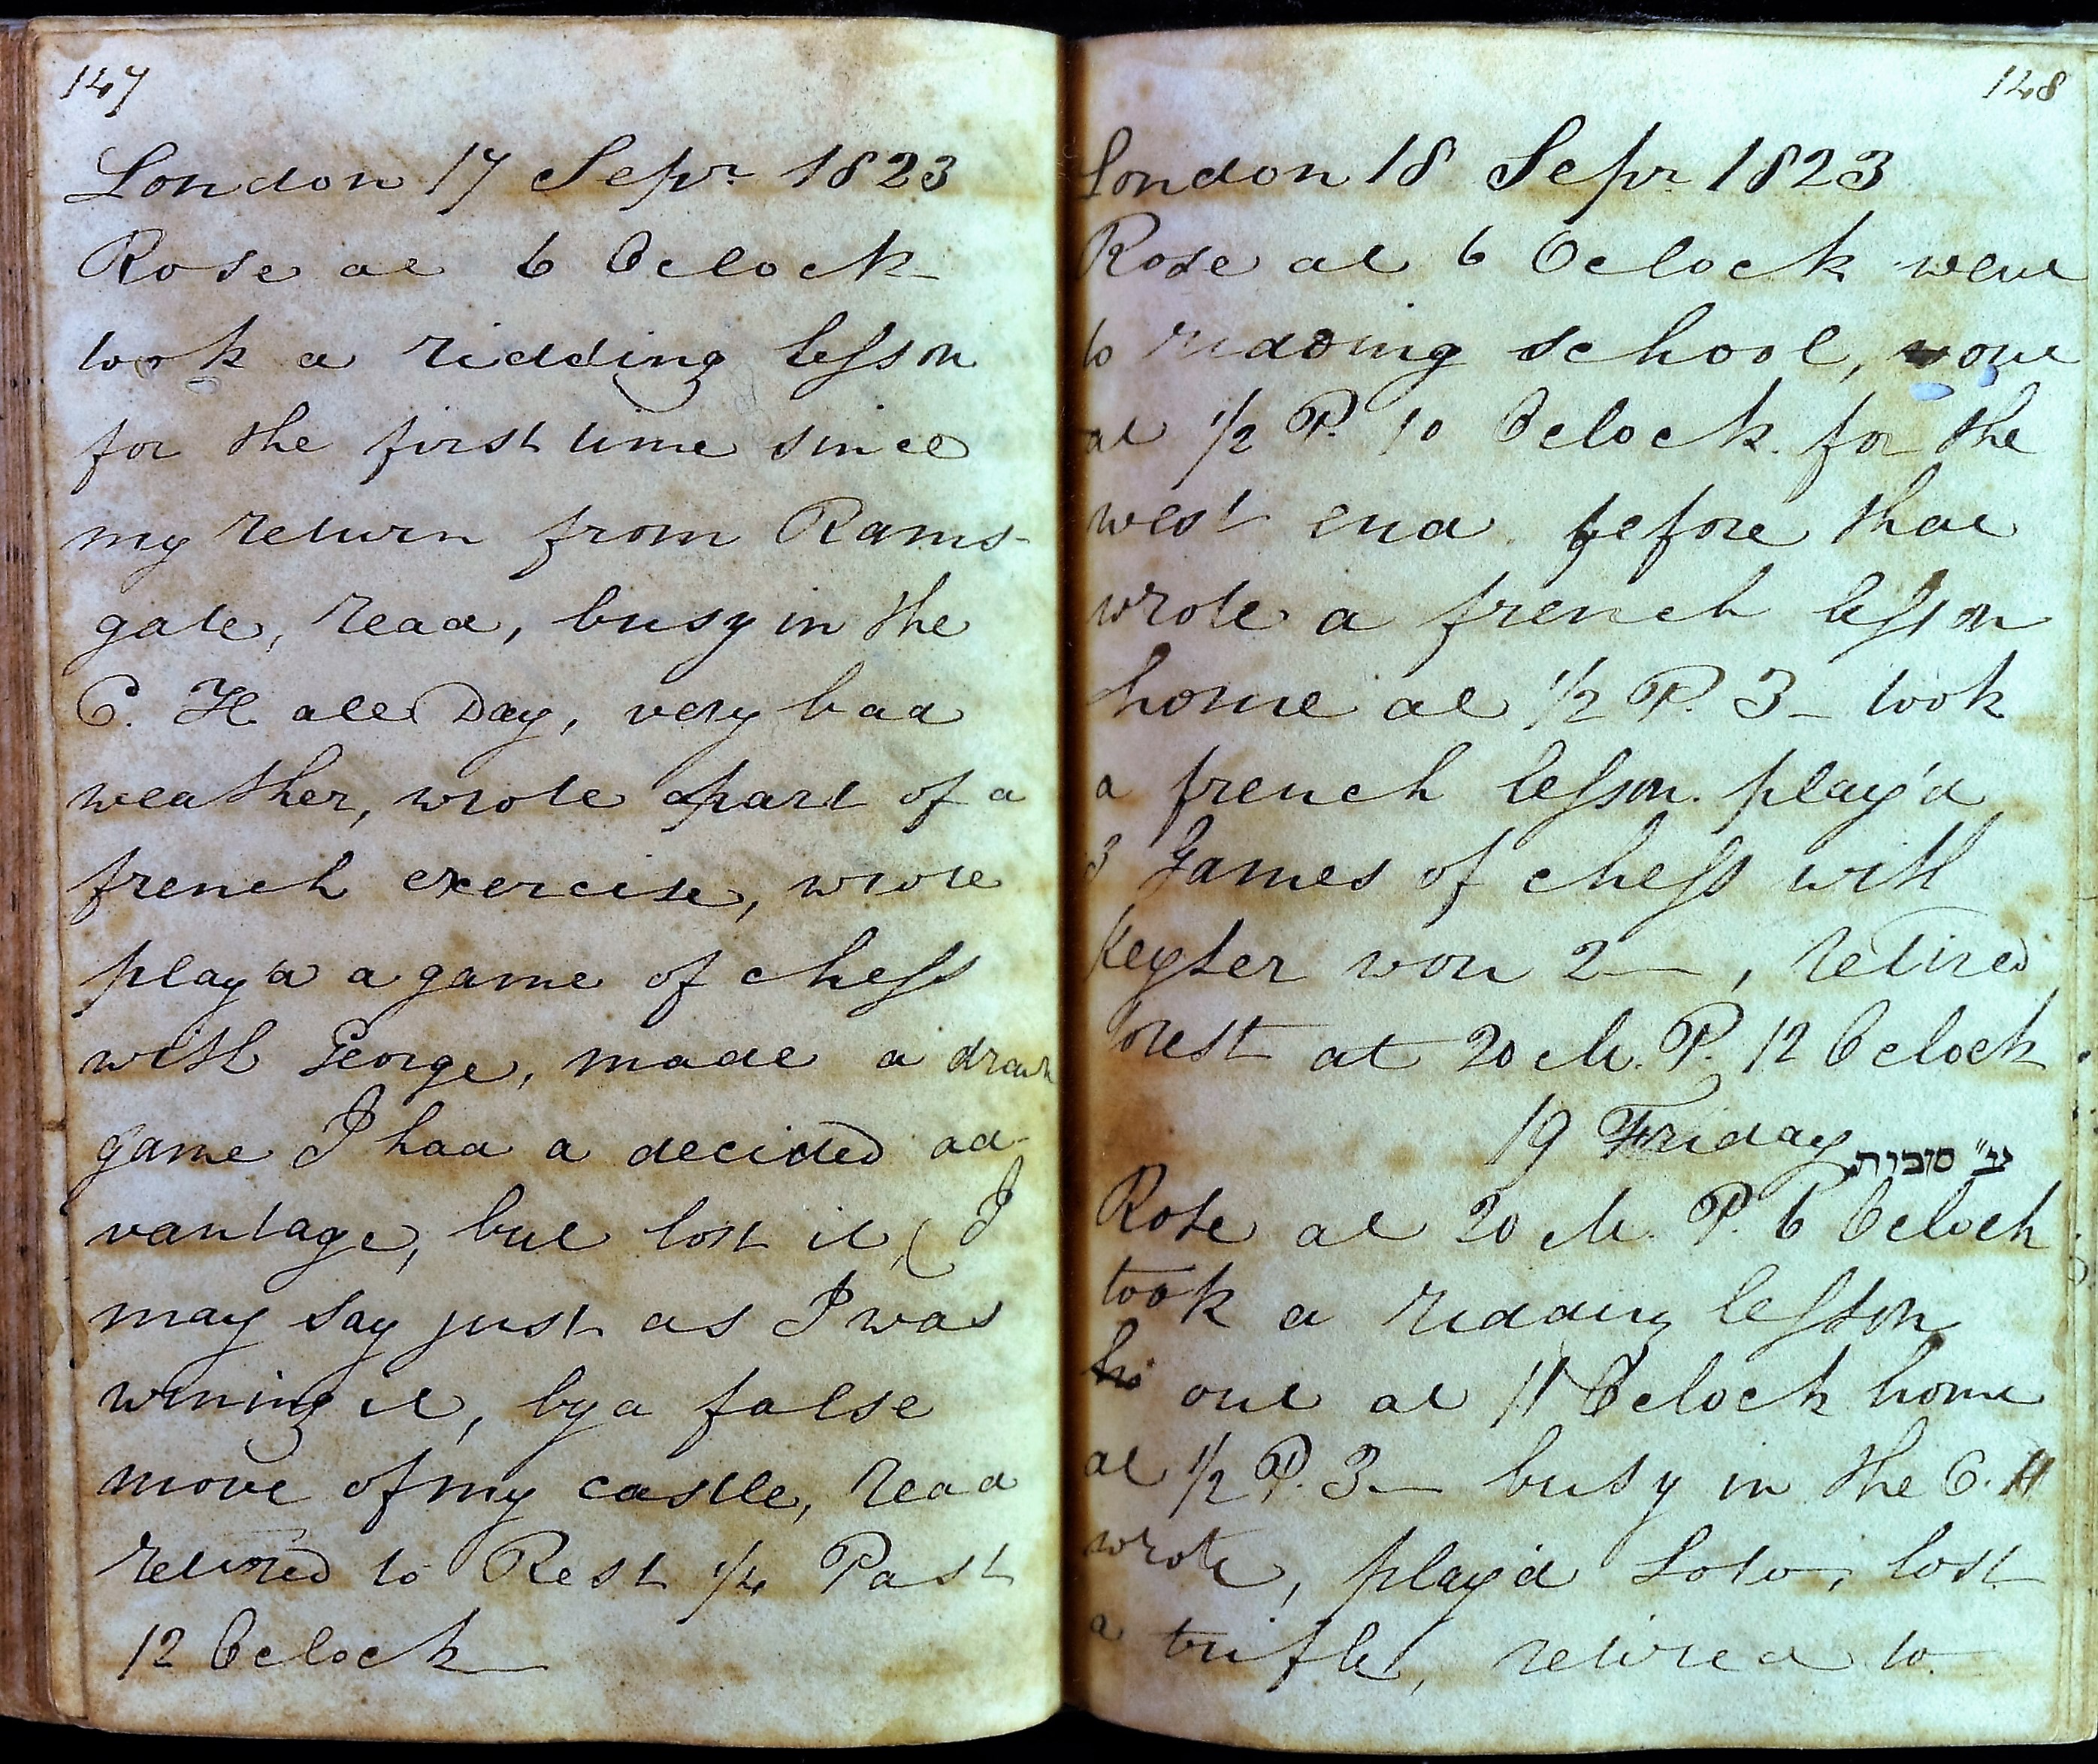 147
London 17 Sepr. 1823
Rose at 6 Oclock
took a ridding lesson
for the first time since
my return from Rams-
gate, read, busy in the
C. H all Day, very bad
weather, wrote apart of a
french exercise, wrote
play'd a game of chess
with George, made a drawn
game I had a decided ad-
vantage, but lost it, (I
may say just as I was
wining it, by a false
move of my castle, read
retired to Rest 1/4 Past
12 Oclock
148
London 18 Sepr. 1823
Rose at 6 Oclock went
to ridding school, out
at 1/2 P. 10 Oclock for the
west end before that
wrote a french lesson
home at 1/2 P. 3 — took
a french lesson. play'd
3 Games of chess with
Keyser won 2 —, retired
to rest at 20 M. P. 12 Oclock
19 Friday ע״ סוכות
Rose at 20 M P. 6 Oclock
took a ridding lesson
out at 11 Oclock home
at 1/2 P. 3 — busy in the C. H
wrote, play'd Loto, lost
a trifle, retired to